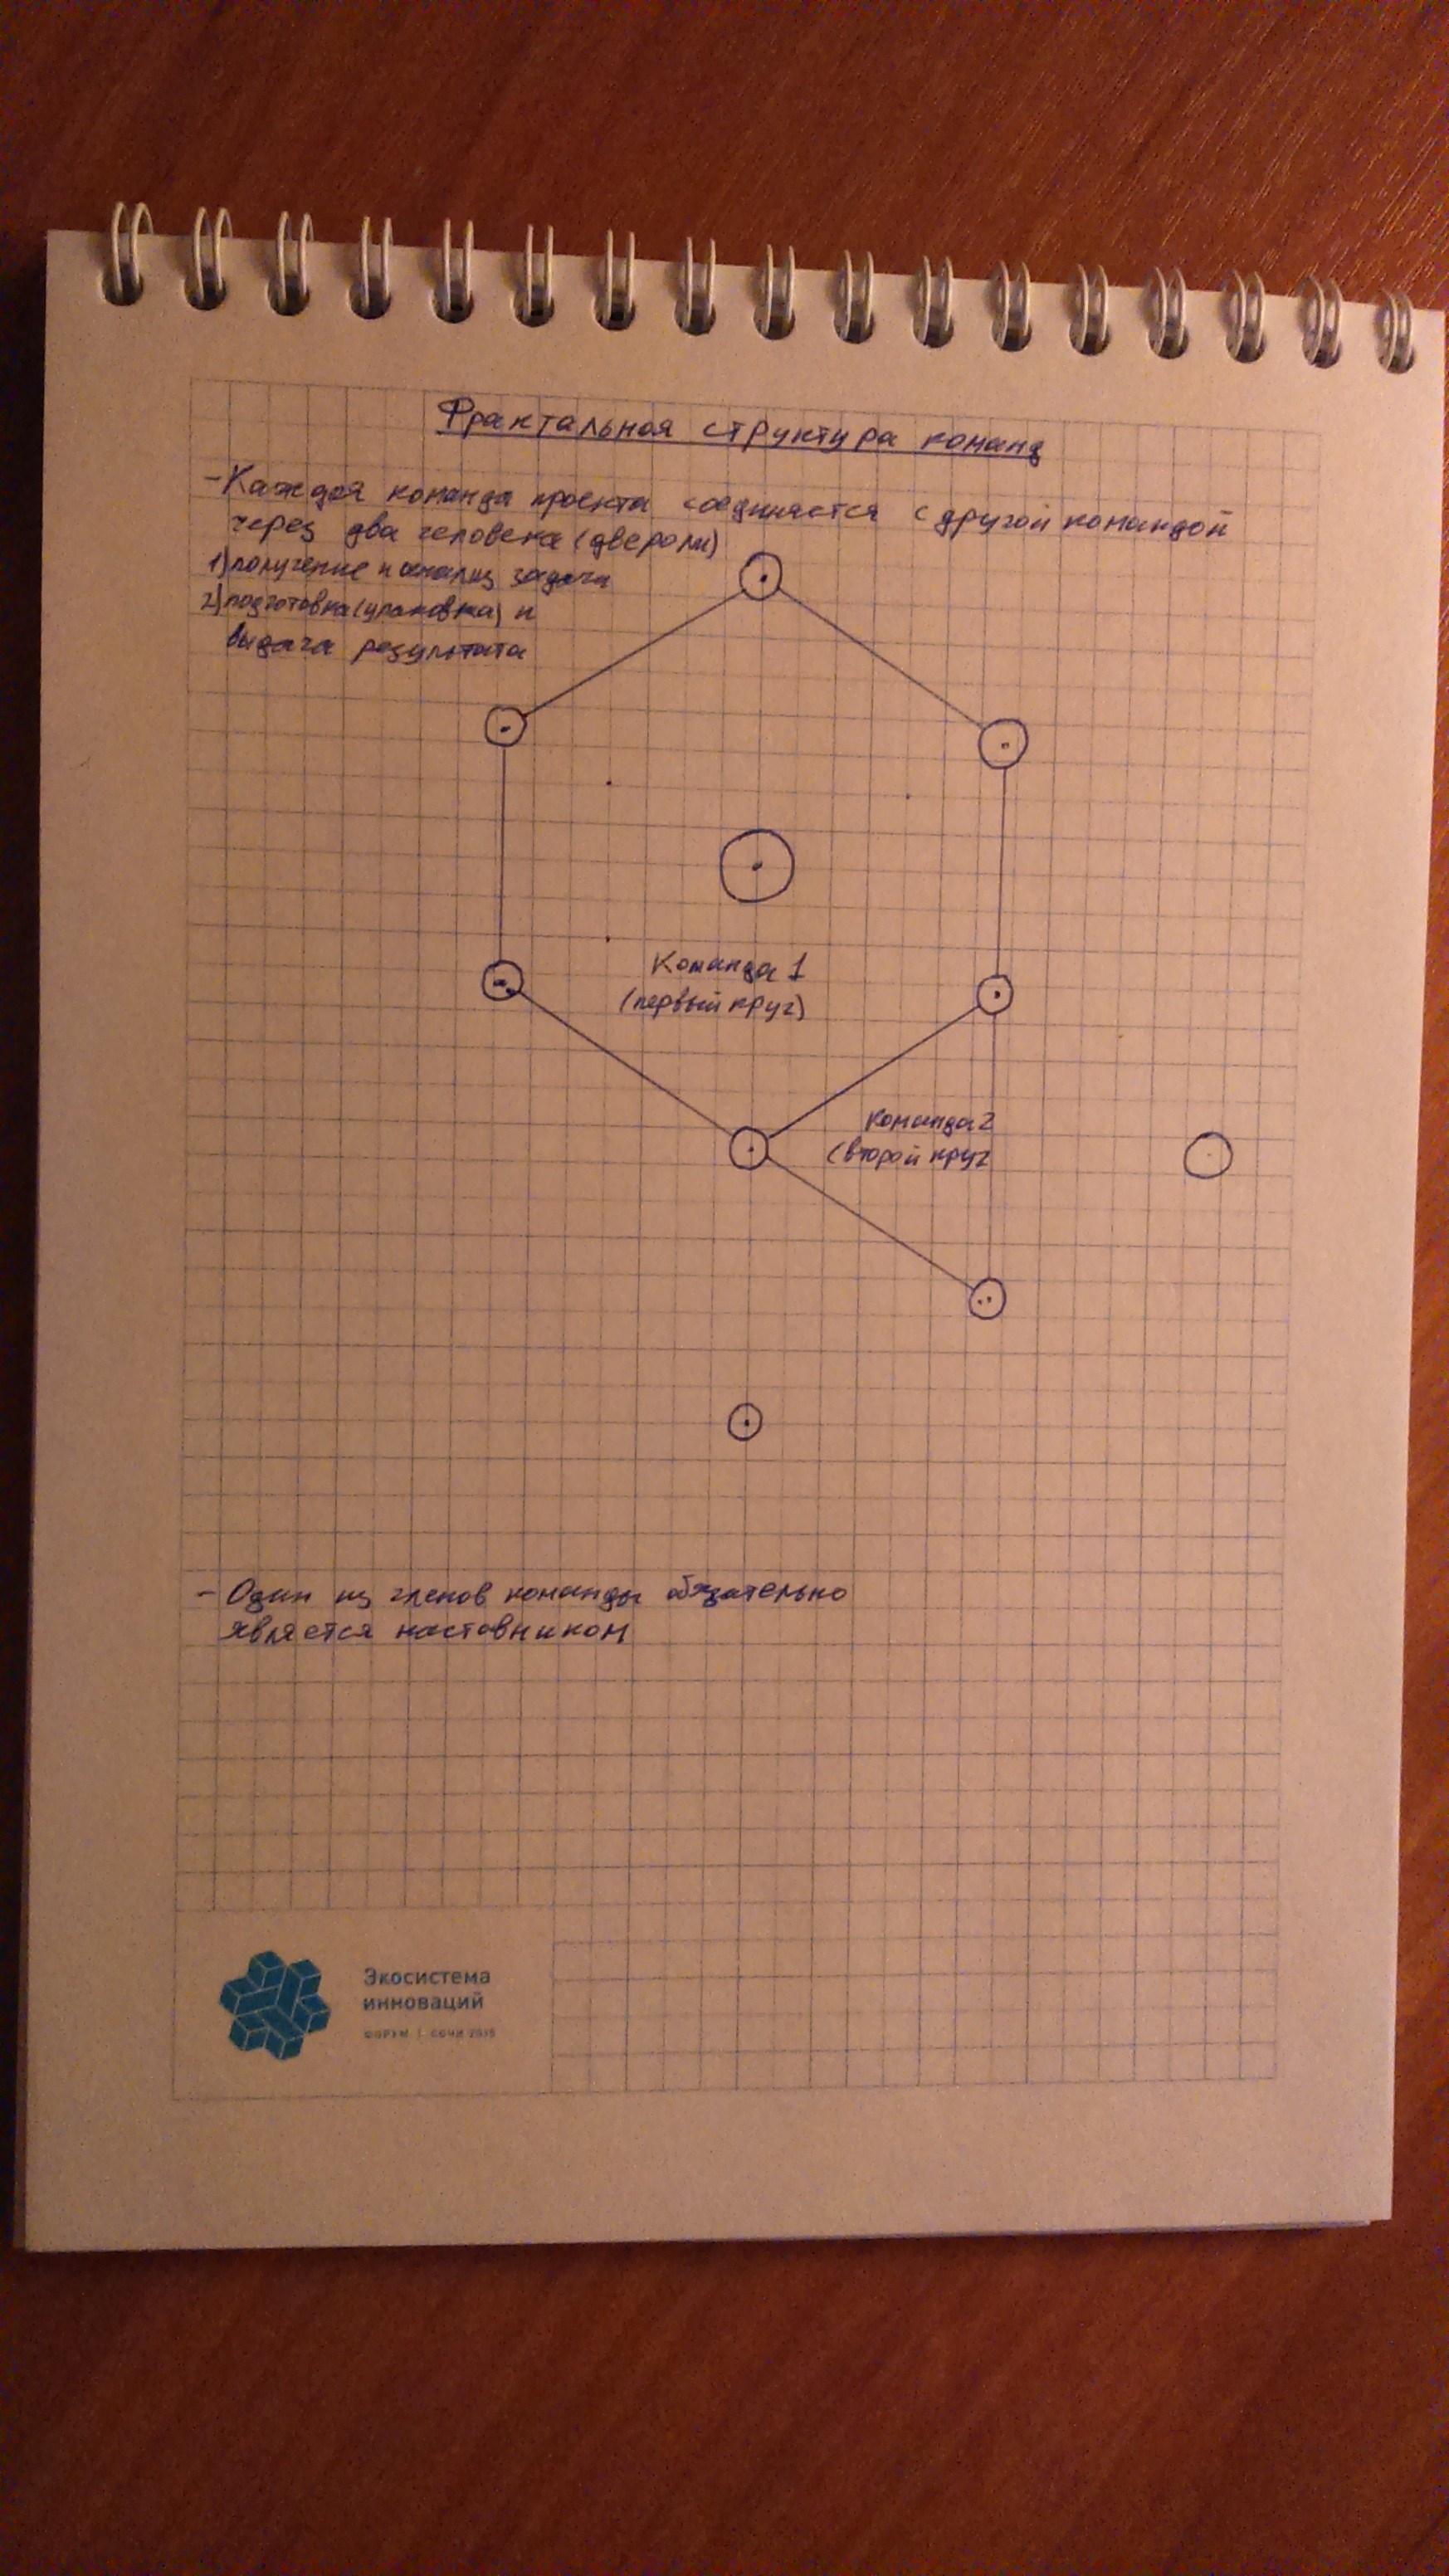 Фрактальная структура команд
- Каждая команда проекта соединяется с другой командой
через два человека (две роли)
1) получение и анализ задачи
2) подготовка (упаковка) и
выдача результата
Команда 1
(первый круг)
Команда 2
(второй круг
- Один из членов команды обязательно
является наставником
Экосистема
инноваций
ФОРУМ | СОЧИ